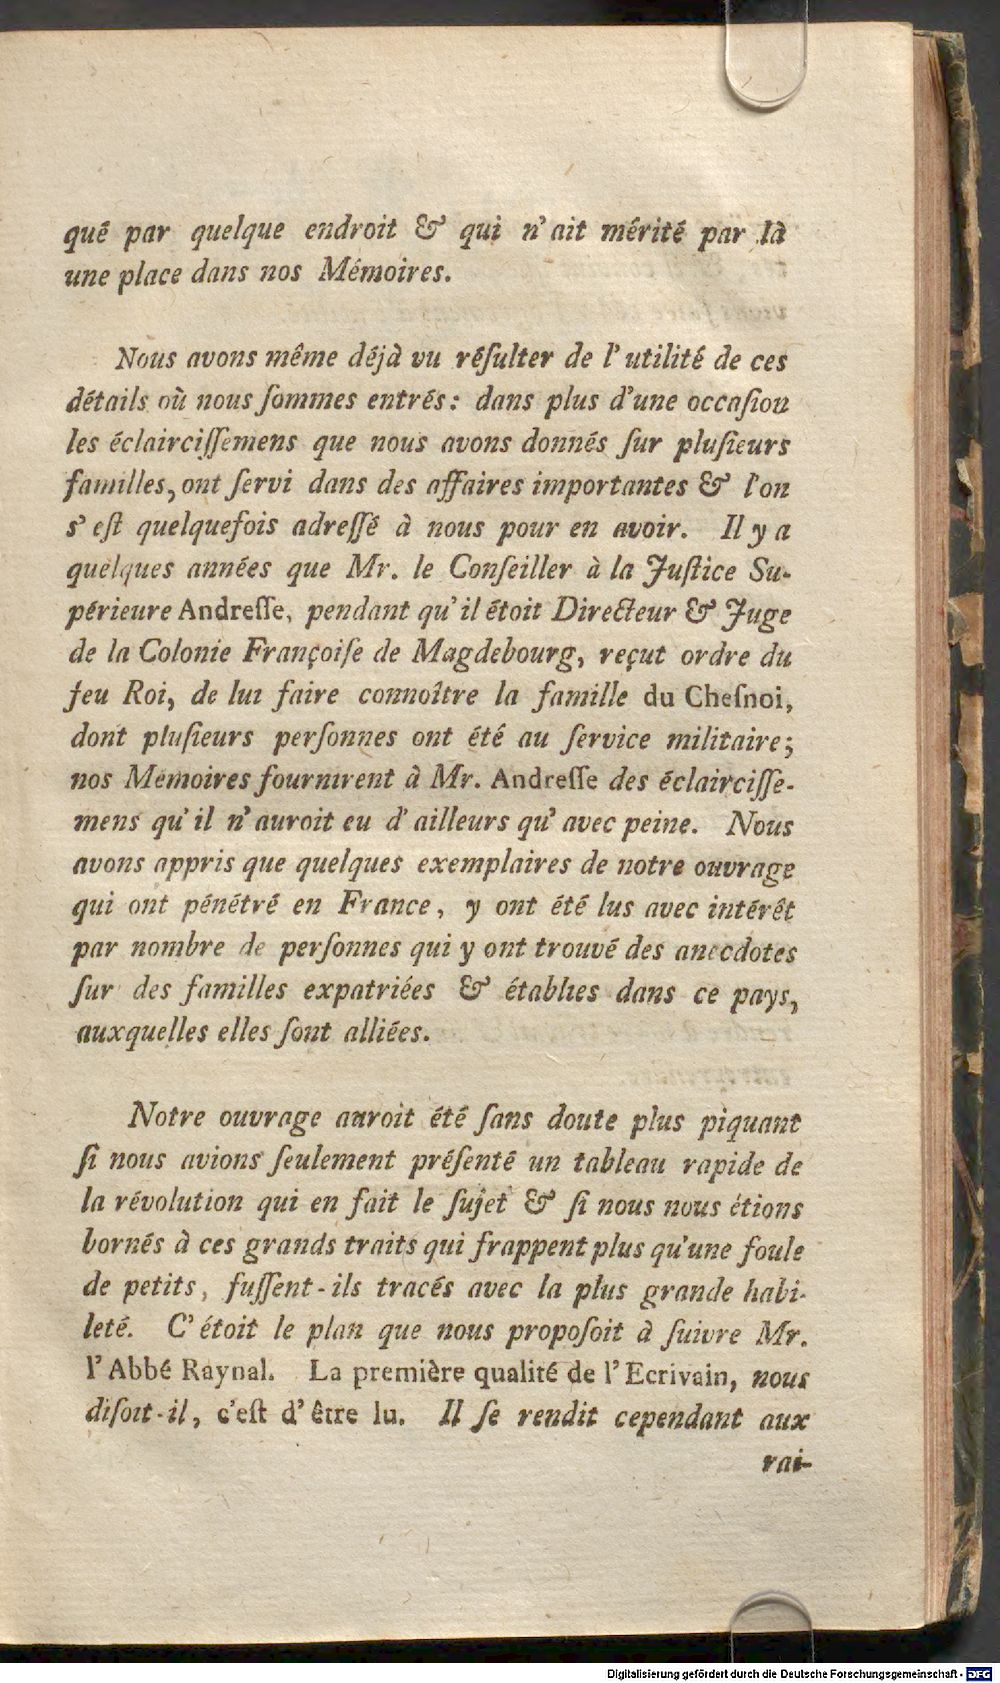 qué par quelque endroit & qui n'ait mérité par là
une place dans nos Mémoires.
Nous avons même déjà vu réſulter de l'utilité de ces
détails où nous ſommes entrés: dans plus d'une occaſion
les éclairciſſemens que nous avons donnés ſur pluſieurs
familles, ont ſervi dans des affaires importantes & l'on
s'eſt quelquefois adreſſé à nous pour en avoir. Il y a
quelques années que Mr. le Conſeiller à la Juſtice Su-
périeure Andreſſe, pendant qu'il étoit Directeur & Juge
de la Colonie Françoiſe de Magdebourg, reçut ordre du
feu Roi, de lui faire connoître la famille du Cheſnoi,
dont pluſieurs perſonnes ont été au ſervice militaire;
nos Mémoires fournirent à Mr. Andreſſe des éclairciſſe-
mens qu'il n'auroit eu d'ailleurs qu'avec peine. Nous
avons appris que quelques exemplaires de notre ouvrage
qui ont pénétré en France, y ont été lus avec intérêt
par nombre de perſonnes qui y ont trouvé des anecdotes
ſur des familles expatriées & établies dans ce pays,
auxquelles elles ſont alliées.
Notre ouvrage auroit été ſans doute plus piquant
ſi nous avions ſeulement préſenté un tableau rapide de
la révolution qui en fait le ſujet & ſi nous nous étions
bornés à ces grands traits qui frappent plus qu'une foule
de petits, fuſſent-ils tracés avec la plus grande habi-
leté. C'étoit le plan que nous propoſoit à ſuivre Mr.
l'Abbé Raynal. La première qualité de l'Ecrivain, nous
diſoit-il, c'eſt d'être lu. Il ſe rendit cependant aux
rai-
Digitalisierung gefördert durch die Deutsche Forschungsgemeinschaft - DFG